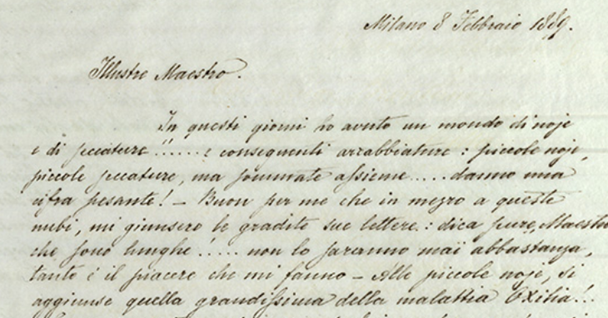 Milano 8 Febbraio 1889.
Illustre Maestro.
In questi giorni ho avuto un mondo di noje
e di seccature!!..... e conseguenti arrabbiature: piccole noje,
piccole seccature, ma sommate assieme.... danno una
cifra pesante! – Buon per me che in mezzo a queste
nubi, mi giunsero le gradite sue lettere: dica pure, Maestro
che sono lunghe!.... non lo saranno mai abbastanza,
tanto è il piacere che mi fanno – Alle piccole noje, si
aggiunse quella grandissima della malattia